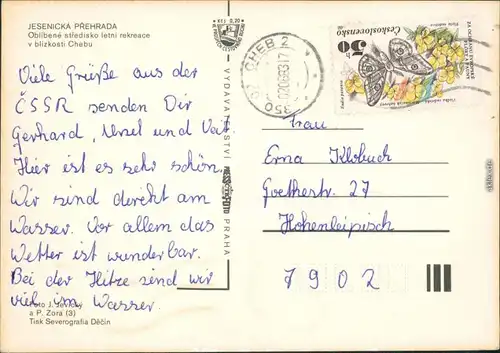 JESENICKÁ PŘEHRADA
Oblíbené středisko letní rekreace
v blízkosti Chebu
Viele Grüße aus der
ČSSR senden Dir
Gerhard, Ursel und Veit.
Hier ist es sehr schön.
Wir sind direkt am
Wasser. Vor allem das
Wetter ist wunderbar.
Bei der Hitze sind wir
viel im Wasser.
Foto J. Jevický
a P. Zora (3)
Tisk Severografia Děčín
VYDAVATELSTVÍ PRESSFOTO PRAHA
KčJ 0,20
350 02 CHEB 2
Československo
50 h
Frau
Erna Klobuch
Goethestr. 27
Hohenleipisch
7902